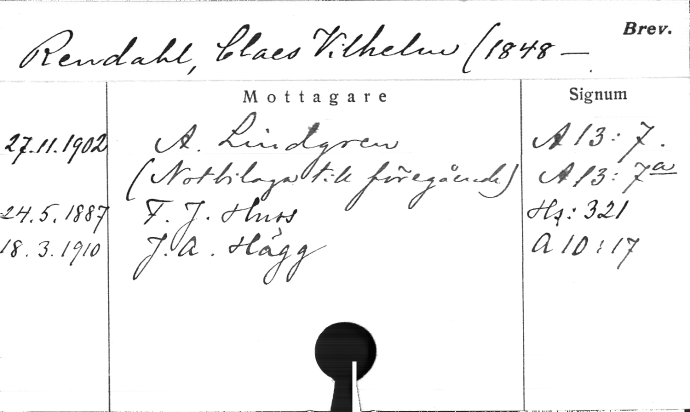 Brev.
Rendahl, Claes Vilhelm (1848 —
Mottagare Signum
27.11.1902 A. Lindgren A 13:7.
(Notbilaga till föregående) A 13:7a
24.5.1887 F. J. Huss Hs: 321
18.3.1910 J. A. Hägg A 10:17